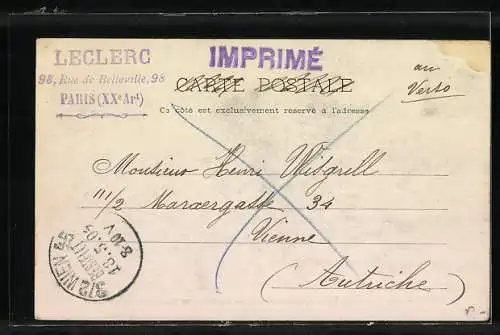 LECLERC
98, Rue de Belleville, 98
PARIS (XXe Art)
IMPRIMÉ
CARTE POSTALE
Ce côté est exclusivement réservé à l'adresse
au
Verso
Monsieur Henri Wisgrill
III/2 Marxergasse 34
Vienne
(Autriche)
3/2 WIEN 3
BESTELLT
13.5.05
8-10V